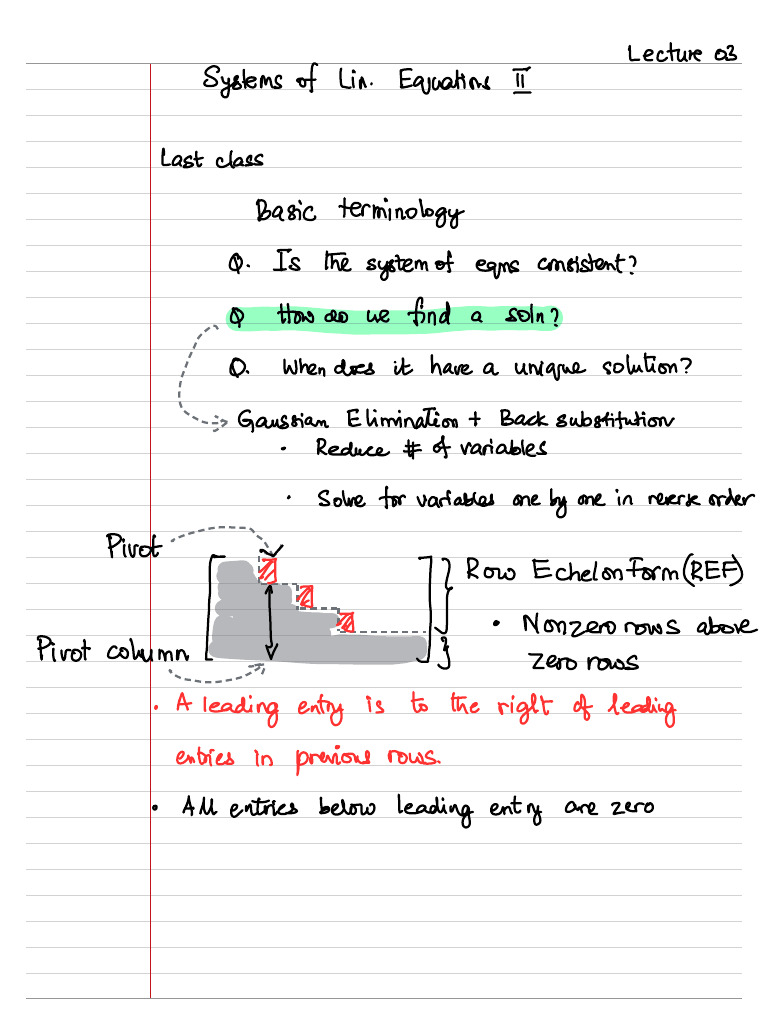 Lecture 03
Systems of Lin. Equations II
Last class
Basic terminology
Q. Is the system of eqns consistent?
Q How do we find a soln?
Q. When does it have a unique solution?
Gaussian Elimination + Back substitution
• Reduce # of variables
• Solve for variables one by one in reverse order
Pivot
Row Echelon Form (REF)
• Nonzero rows above
zero rows
Pivot column
• A leading entry is to the right of leading
entries in previous rows.
• All entries below leading entry are zero